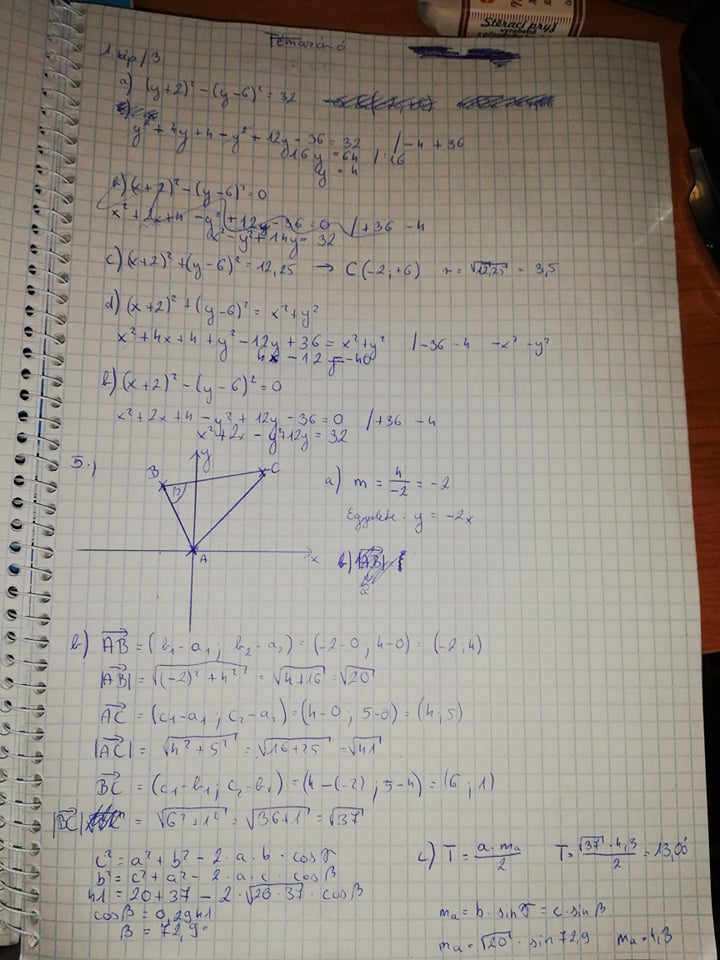 Stěrací pryž
výrobeno
Témazáró
1. kép./3
a) (y+2)² - (y-6)² = 32
y² + 4y + 4 - y² + 12y - 36 = 32 / -4 +36
16y = 64 / :16
y = 4
b) (x+2)² - (y-6)² = 0
x² + 2x + 4 - y² + 12y - 36 = 0 / +36 -4
x² - y² + 14y = 32
c) (x+2)² + (y-6)² = 12,25 → C(-2; +6) r = √12,25 = 3,5
d) (x+2)² + (y-6)² = x² + y²
x² + 4x + 4 + y² - 12y + 36 = x² + y² / -36 -4 -x² -y²
4x - 12y = -40
b) (x+2)² - (y-6)² = 0
x² + 2x + 4 - y² + 12y - 36 = 0 / +36 -4
x² + 2x - y² + 12y = 32
5.)
y
B
C
β
A
x
a) m = 4/-2 = -2
y = -2x
b) |AB|
b) AB = (b₁ - a₁ ; b₂ - a₂) = (-2-0 ; 4-0) = (-2 ; 4)
|AB| = √(-2)² + 4² = √4+16 = √20
AC = (c₁ - a₁ ; c₂ - a₂) = (4-0 ; 5-0) = (4 ; 5)
|AC| = √4² + 5² = √16+25 = √41
BC = (c₁ - b₁ ; c₂ - b₂) = (4-(-2) ; 5-4) = (6 ; 1)
|BC| = √6² + 1² = √36+1 = √37
c² = a² + b² - 2·a·b·cosγ
b² = c² + a² - 2·a·c·cosβ
41 = 20 + 37 - 2·√20·37·cosβ
cosβ = 0,2941
β = 72,9°
c) T = a·mₐ/2 T = √37·4,3/2 = 13,08
mₐ = b·sinγ = c·sinβ
mₐ = √20·sin72,9 mₐ = 4,3